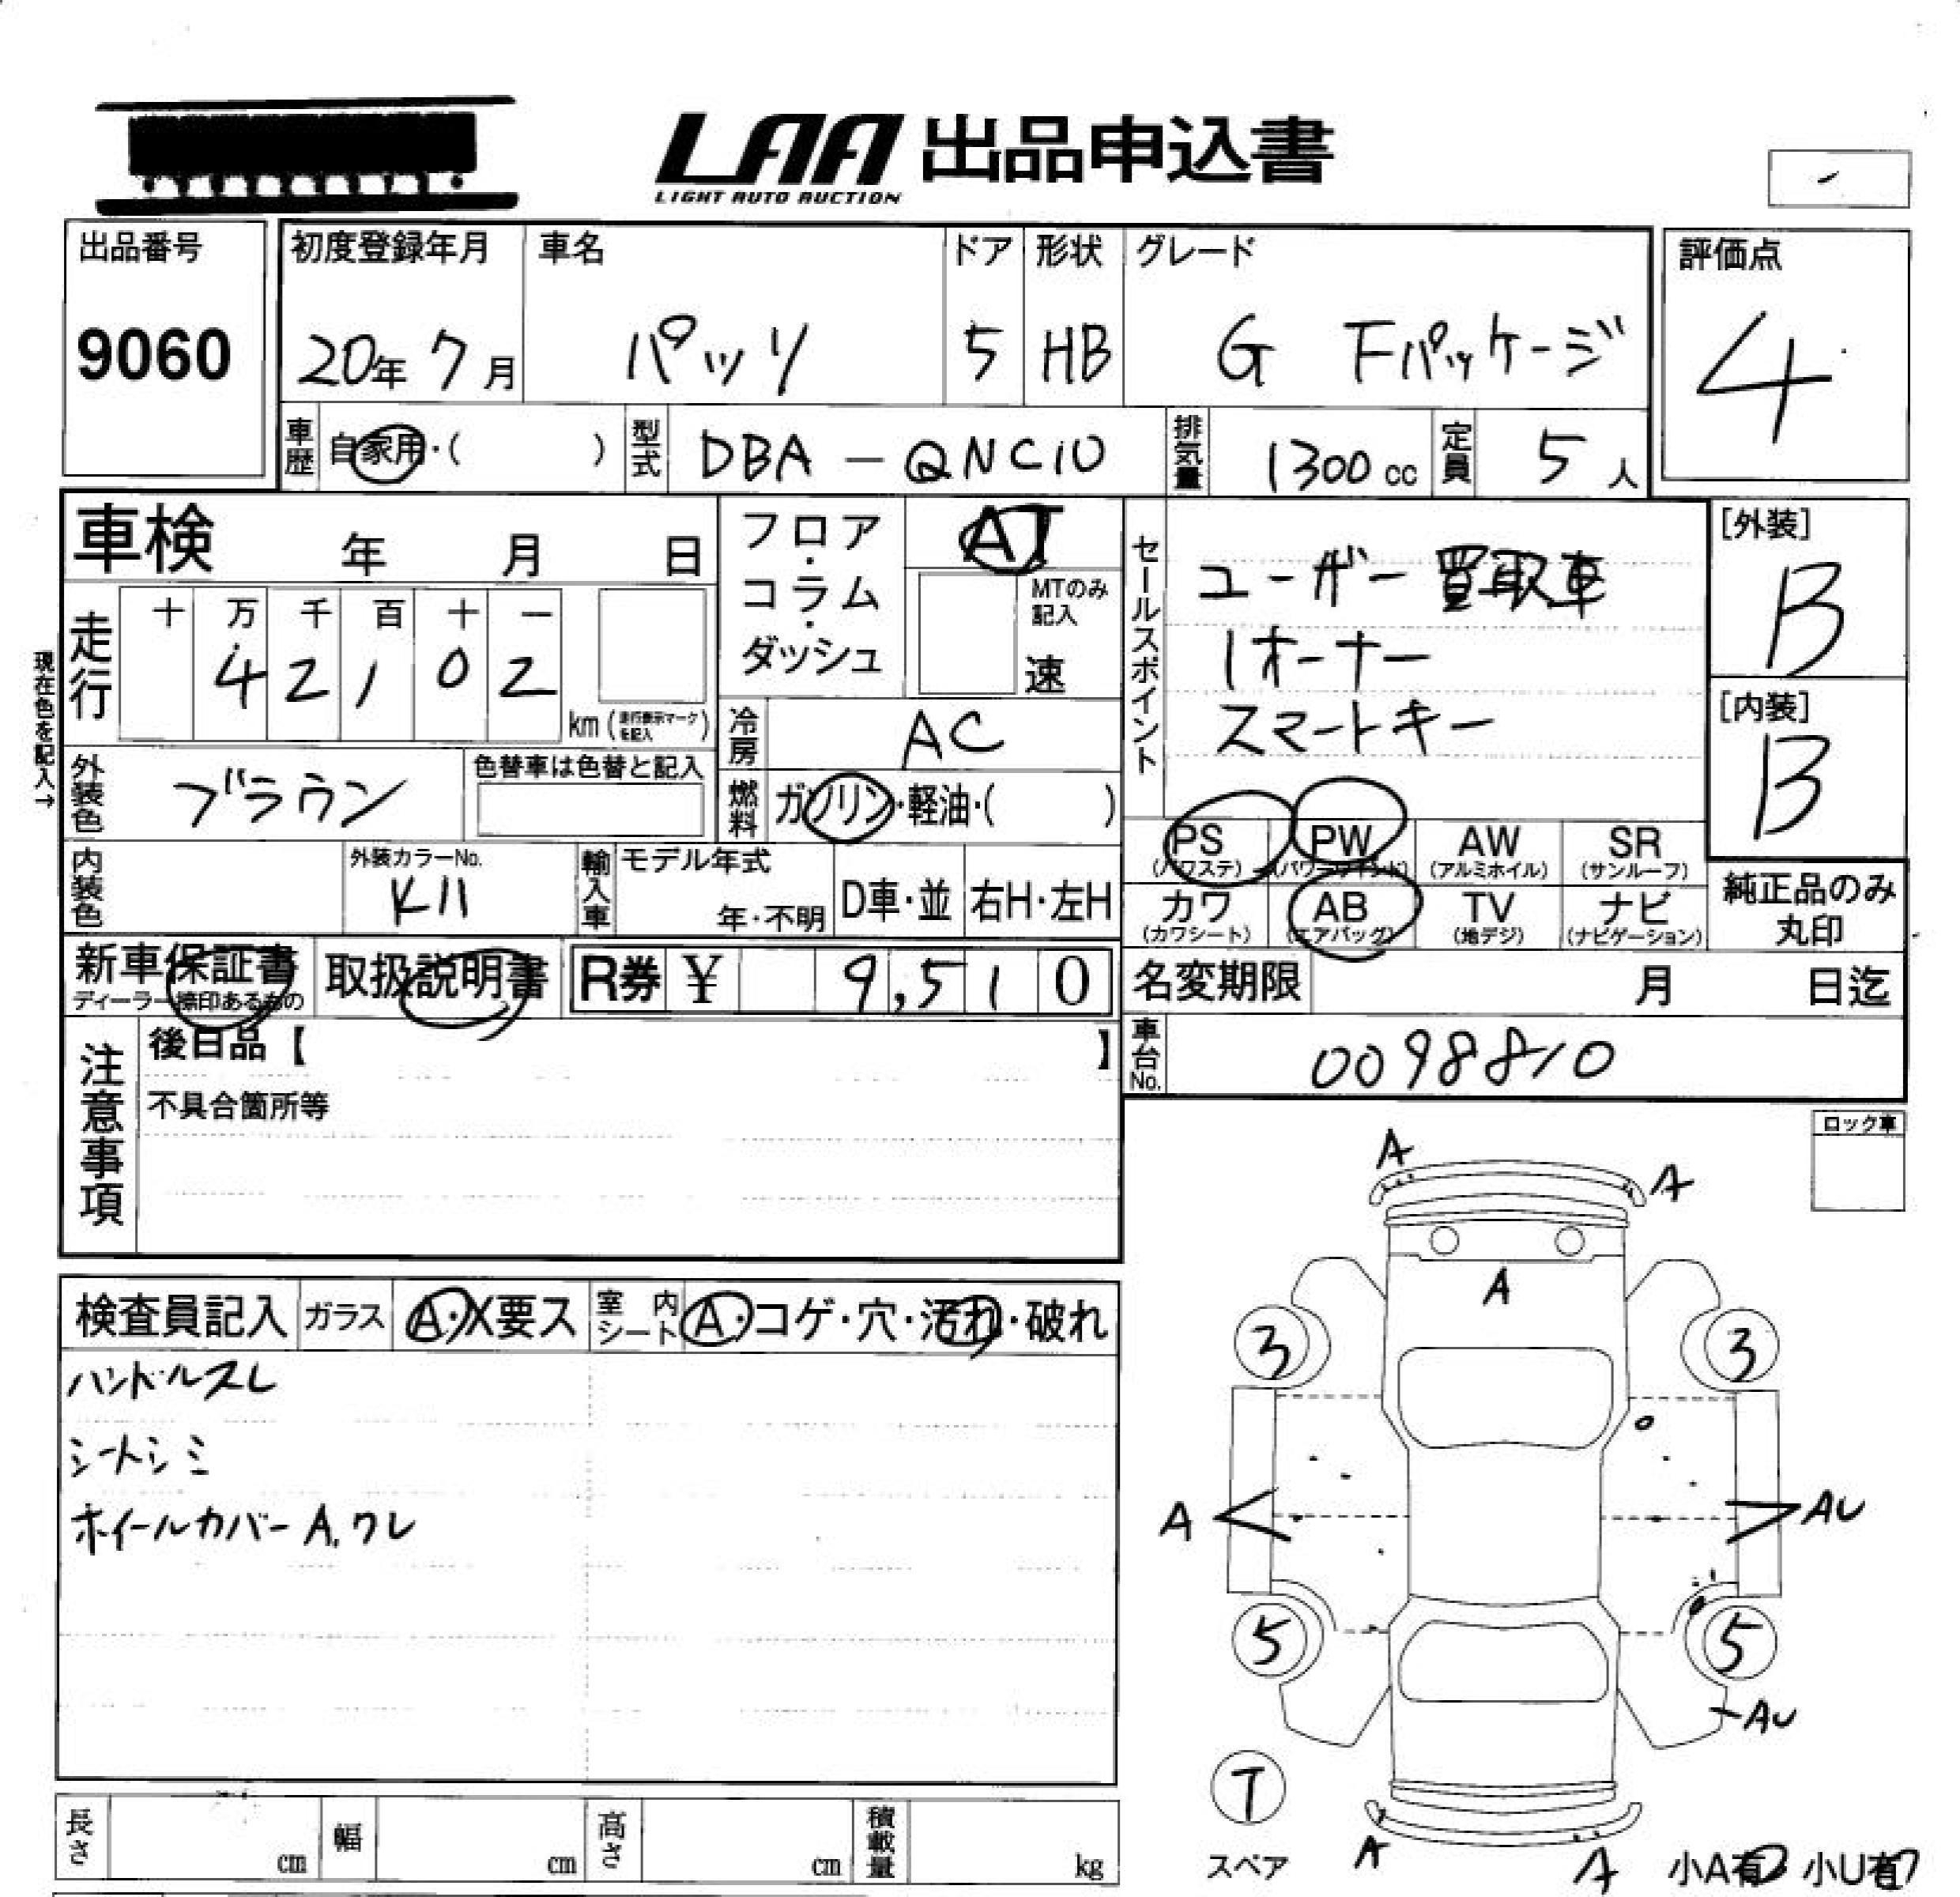 LAA 出品申込書
LIGHT AUTO AUCTION
出品番号
9060
初度登録年月
20年 7月
車名
パッソ
ドア
5
形状
HB
グレード
G Fパッケージ
評価点
4
車歴
自家用・( )
型式
DBA-QNC10
排気量
1300cc
定員
5人
車検 年 月 日
現在色を記入→
走行
十 万 千 百 十 一
4 2 1 0 2
km(走行表示マークを記入)
フロア・コラム・ダッシュ
AT
MTのみ記入
速
冷房
AC
燃料
ガソリン・軽油・( )
外装色
ブラウン
色替車は色替と記入
内装色
外装カラーNo.
K11
輸入車
モデル年式
年・不明
D車・並
右H・左H
セールスポイント
ユーザー買取車
1オーナー
スマートキー
[外装]
B
[内装]
B
PS(パワステ)
PW(パワーウインド)
AW(アルミホイル)
SR(サンルーフ)
カワ(カワシート)
AB(エアバッグ)
TV(地デジ)
ナビ(ナビゲーション)
純正品のみ丸印
新車保証書
ディーラー捺印あるもの
取扱説明書
R券 ¥ 9,510
名変期限 月 日迄
車台No.
0098810
注意事項
後日品【 】
不具合箇所等
ロック車
検査員記入
ガラス
A・X要ス
室内シート
A・コゲ・穴・汚れ・破れ
ハンドルスレ
シートシミ
ホイールカバーA,ワレ
A
A
A
3
3
A
AU
5
5
AU
T
スペア
A
A
小A有
小U有
長さ cm
幅 cm
高さ cm
積載量 kg